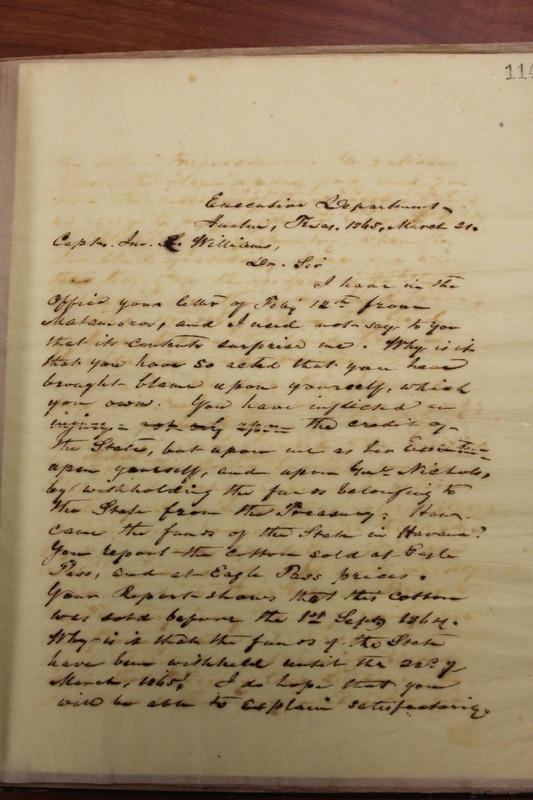 114
Executive Department
Austin, Texas, 1865, March 21.
Capt. Jno. Williams,
Dr. Sir
I have in the
Office your letter of Feby 12th from
Matamoros, and I need not say to you
that its contents surprise me. Why is it
that you have so acted that you have
brought blame upon yourself, which
you own. You have inflicted an
injury not only upon the credit of
the State, but upon me as her Executive
upon yourself, and upon Genl. Nichols,
by withholding the funds belonging to
the State from the Treasury. How
came the funds of the State in Havana?
You report the cotton sold at Eagle
Pass, and at Eagle Pass prices.
Your Report shows that this Cotton
was sold before the 1st Sept, 1864.
Why is it that the funds of the State
have been withheld until the 22d of
March, 1865? I do hope that you
will be able to explain satisfactorily